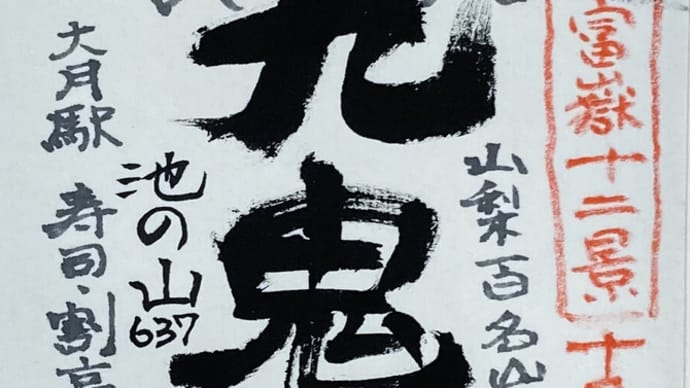 富嶽十二景 十
山梨百名山
九鬼
池の山
637
大月駅 寿司・割烹